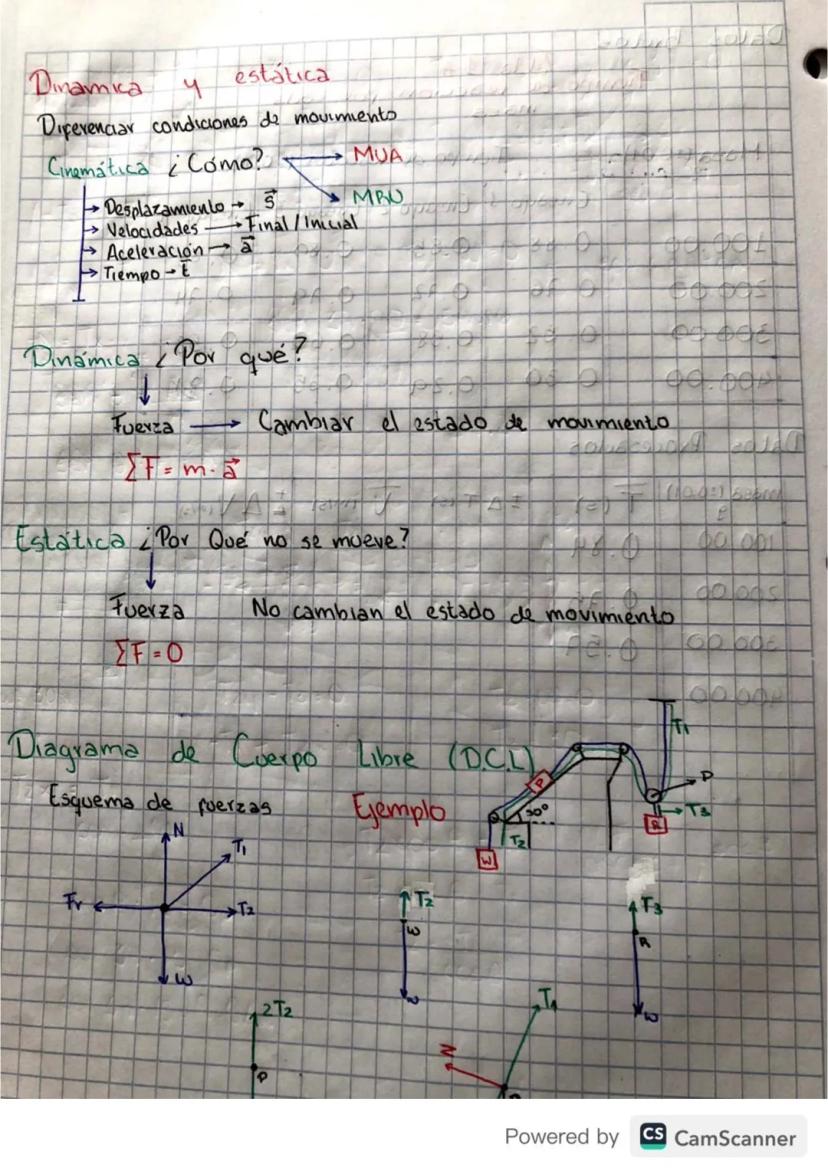 Dinamica y estática
Diferenciar condiciones de movimiento
Cinemática ¿Cómo? → MUA
→ MRU
→ Desplazamiento → s⃗
→ Velocidades → Final / Inicial
→ Aceleración → a⃗
→ Tiempo → t
Dinámica ¿Por qué?
Fuerza → Cambiar el estado de movimiento
ΣF = m · a⃗
Estática ¿Por Qué no se mueve?
Fuerza No cambian el estado de movimiento
ΣF = 0
Diagrama de Cuerpo Libre (D.C.L)
Esquema de fuerzas Ejemplo
T1
P
P
30°
T3
R
T2
W
N
T1
Fr
T2
W
T2
W
W
T3
R
W
2T2
P
T1
N
Powered by CS CamScanner